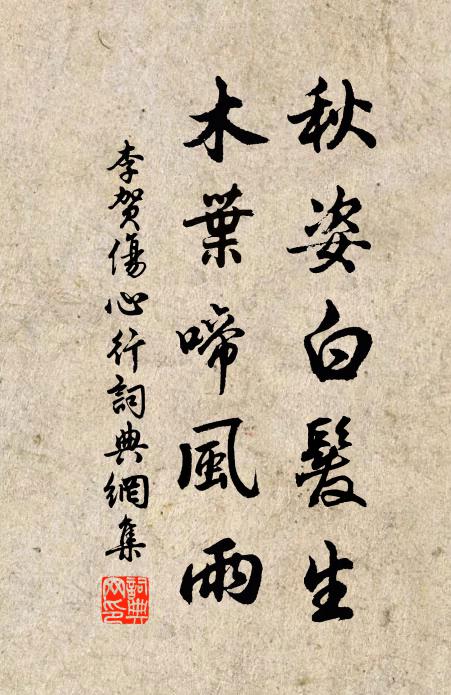 秋姿白髮生
木葉啼風雨
李賀傷心行詞典網集
詞典网印